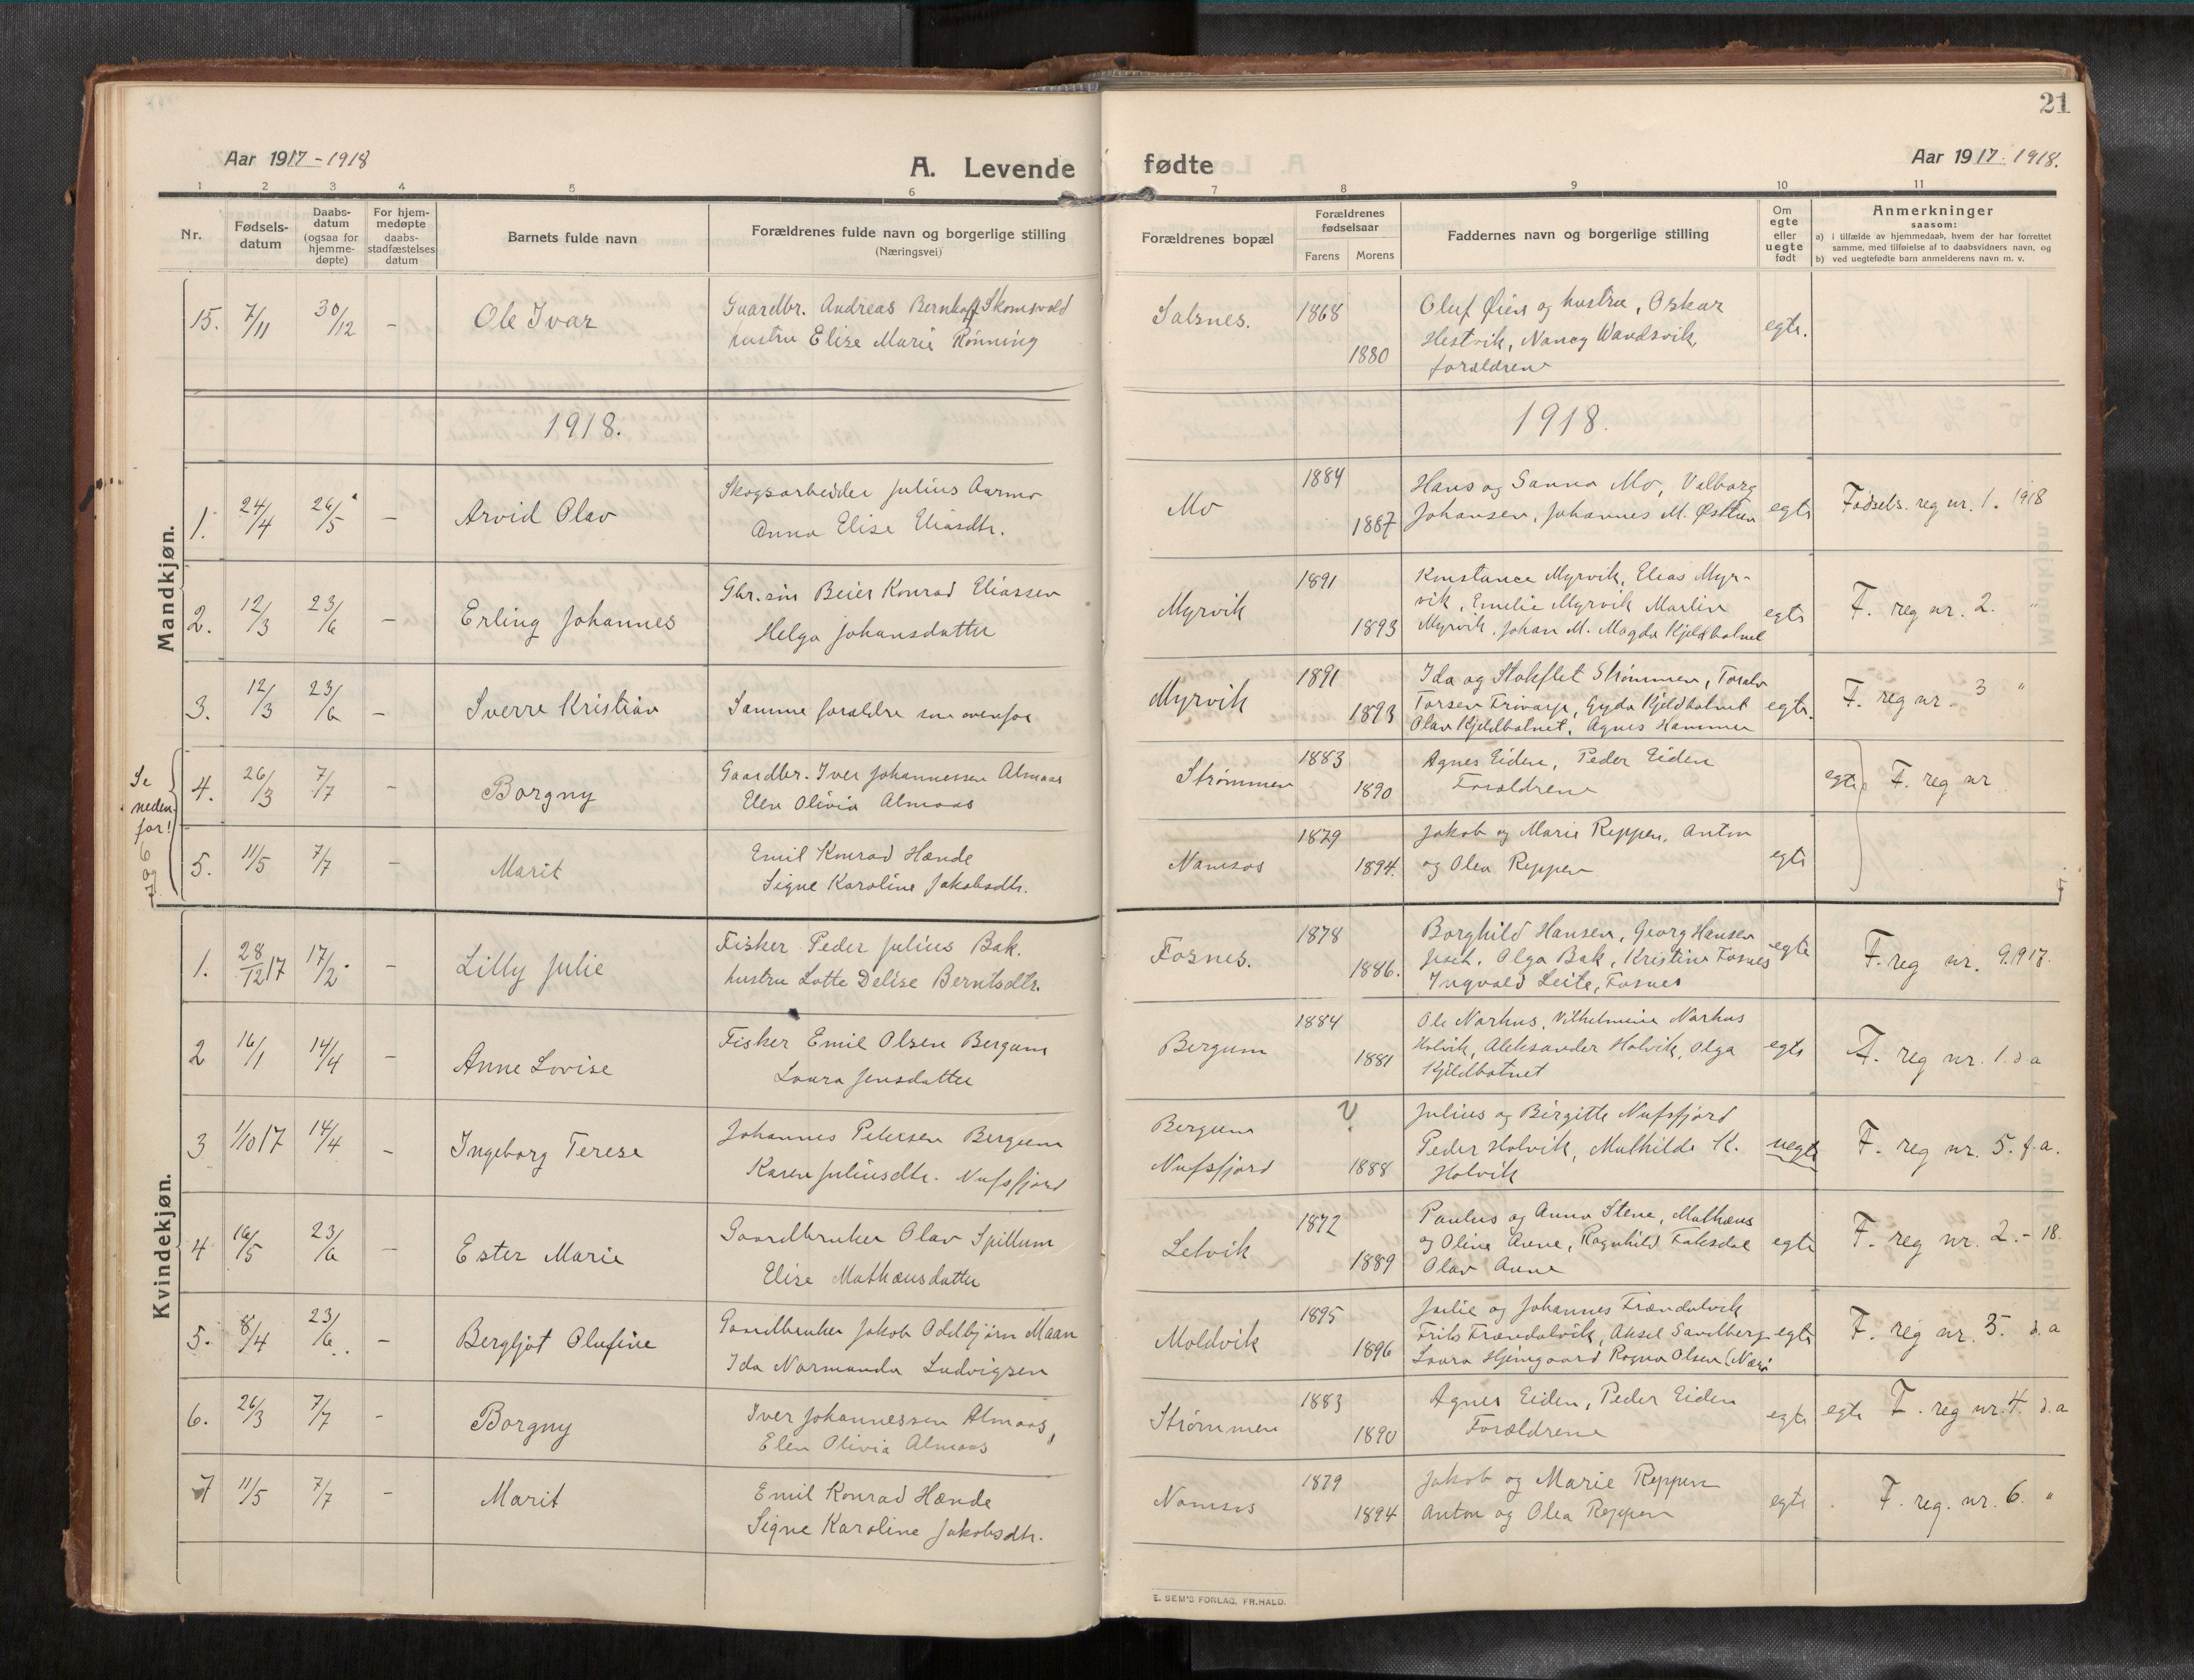 21
Aar 1917-1918
A. Levende fødte
Aar 1917-1918.
1 2 3 4 5 6 7 8 9 10 11
Nr.
Fødsels-
datum
Daabs-
datum
(ogsaa for
hjemme-
døpte)
For hjem-
medøpte
daabs-
stadfæstelses
datum
Barnets fulde navn
Forældrenes fulde navn og borgerlige stilling
(Næringsvei)
Forældrenes bopæl
Forældrenes
fødselsaar
Farens Morens
Faddernes navn og borgerlige stilling
Om
egte
eller
uegte
født
Anmerkninger
saasom:
a) i tilfælde av hjemmedaab, hvem der har forrettet
samme, med tilføielse af to daabsvidners navn, og
b) ved uegtefødte barn anmelderens navn m. v.
Mandkjøn.
15. 7/11 30/12 - Ole Ivar
Gaardbr. Andreas Bernhoff Skomsvold
hustru Elise Marie Rønning
Salsnes. 1868 1880
Oluf Øien og hustru, Oskar
Hestvik, Nancy Wandsvik,
forældren
egte.
1918. 1918.
1. 24/4 26/5 - Arvid Olav
Skogsarbeider Julius Aarmo
Anna Elise Eliasdtr.
Mo 1884 1887
Hans og Sanna Mo, Valborg
Johansen, Johannes M.
egte
Fødsels. reg nr. 1. 1918
2. 12/3 23/6 - Erling Johannes
Gbr. søn Beier Konrad Eliassen
Helga Johansdatter
Myrvik 1891 1893
Konstance Myrvik, Elias Myr-
vik, Emelie Myrvik Martin
Myrvik, Johan M. Magda Kjeldbotnet
egte
F. reg nr. 2. "
3. 12/3 23/6 - Sverre Kristian
Samme forældre som ovenfor
Myrvik 1891 1893
Ida og Stokflet Strømmen, Toralv
Torsen Gyda Kjeldbotnet
Olav Kjeldbotnet, Agnes Hammer
egte.
F. reg nr. 3 "
Se
neden
for!
6 og 7
4. 26/3 7/7 - Borgny
Gaardbr. Iver Johannessen Almaas
Elen Olivia Almaas
Strømmen 1883 1890
Agnes Eiden, Peder Eiden
Forældrene
egte F. reg nr
5. 11/5 7/7 - Marit
Emil Konrad Hænde
Signe Karoline Jakobsdtr.
Namsos 1879 1894.
Jakob og Marie Reppen, Anton
og Olea Reppen
egte
Kvindekjøn.
1. 28/12 17 17/2 - Lilly Julie
Fisker Peder Julius Bak.
hustru Lotte Delise Berntsdtr.
Fosnes. 1878 1886.
Borghild Hansen, Georg Hansen
Olga Bak, Kristine Fosnes
Ingvald Leite, Fosnes
egte
F. reg nr. 9. 1917.
2 16/1 14/4 - Anne Lovise
Fisker Emil Olsen Bergum
Laura Jensdatter
Bergum 1884 1881
Ole Narhus, Vilhelmine Narhus
Holvik, Aleksander Holvik, Olga
Kjeldbotnet
egte
F. reg nr. 1. d.a
3 1/10 17 14/4 - Ingeborg Terese
Johannes Petersen Bergum
Karen Juliusdtr. Nufsfjord
Bergum
Nufsfjord
? 1888
Julius og Birgitte Nufsfjord
Peder Holvik, Mathilde K.
Holvik
uegte
F. reg nr. 5. f.a.
4 16/5 23/6 - Ester Marie
Gaardbruker Olav Spillum
Elise Mathæusdatter
Letvik 1872 1889
Paulus og Anna Stene, Mathæus
og Oline Aune, Ragnhild Faksdal
Olav Aune
egte
F. reg nr. 2. - 18.
5. 8/4 23/6 - Bergljot Olufine
Gaardbruker Jakob Oddbjørn Maan
Ida Normanda Ludvigsen
Moldvik 1895 1896
Julie og Johannes Frændalvik
Frits Frændalvik, Aksel Sandberg
Laura Hjemgaard Ragna Olsen (Nærø
egte
F. reg nr. 3. d.a
6. 26/3 7/7 - Borgny
Iver Johannessen Almaas,
Elen Olivia Almaas
Strømmen 1883 1890
Agnes Eiden, Peder Eiden
Forældrene
egte
egte F. reg nr. 4. d.a
7 11/5 7/7 - Marit
Emil Konrad Hænde
Signe Karoline Jakobsdtr.
Namsos 1879 1894
Jakob og Marie Reppen
Anton og Olea Reppen
egte
F. reg. nr. 6. "
E. SEM'S FORLAG, FR.HALD.